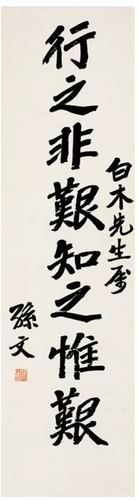 白木先生屬
行之非艱知之惟艱
孫文